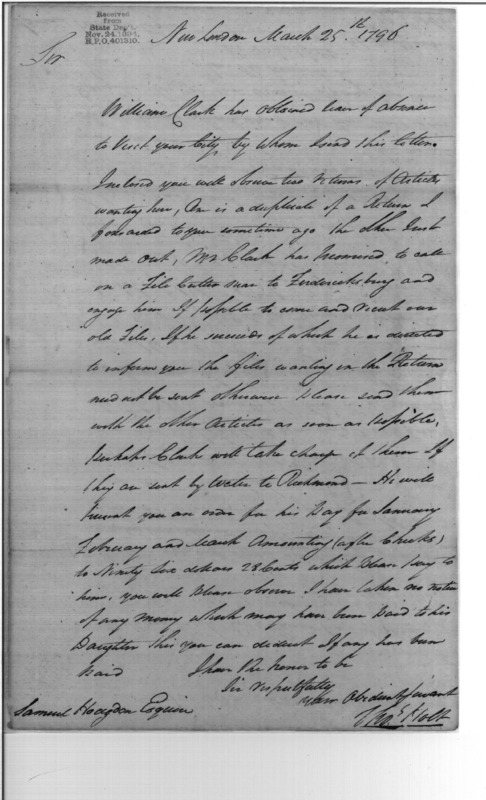 Received
from
State Dep't.
Nov. 24. 1894.
R.P.O, 401910.
New London March 25th. 1796
Sir
William Clark has obtained leave of absence
to Visit your City, by Whom I send this letter.
Inclosed you will observe two returns of Articles
wanting here, One is a duplicate of a Return I
forwarded to you sometime ago the other Just
made out, Mr Clark has promised, to call
on a File Cutter near to Fredericksburg and
engage him If possible to come and recut our
old Files, If he succeeds of which he is directed
to inform you the files wanting in the Return
need not be sent otherwise please send them
with the other Articles as soon as possible,
perhaps Clark will take charge of them If
they are sent by Water to Richmond — He will
present you an order for his Pay for January
February and March Amounting (after Checks)
to Ninety five dollars 28 Cents which please pay to
him, you will please observe I have taken no notice
of any money which may have been paid to his
Daughter this you can deduct If any has been
paid I have the honor to be
Sir respectfully
your Obedient Servant
Thos Holt
Samuel Hodgdon Esquire